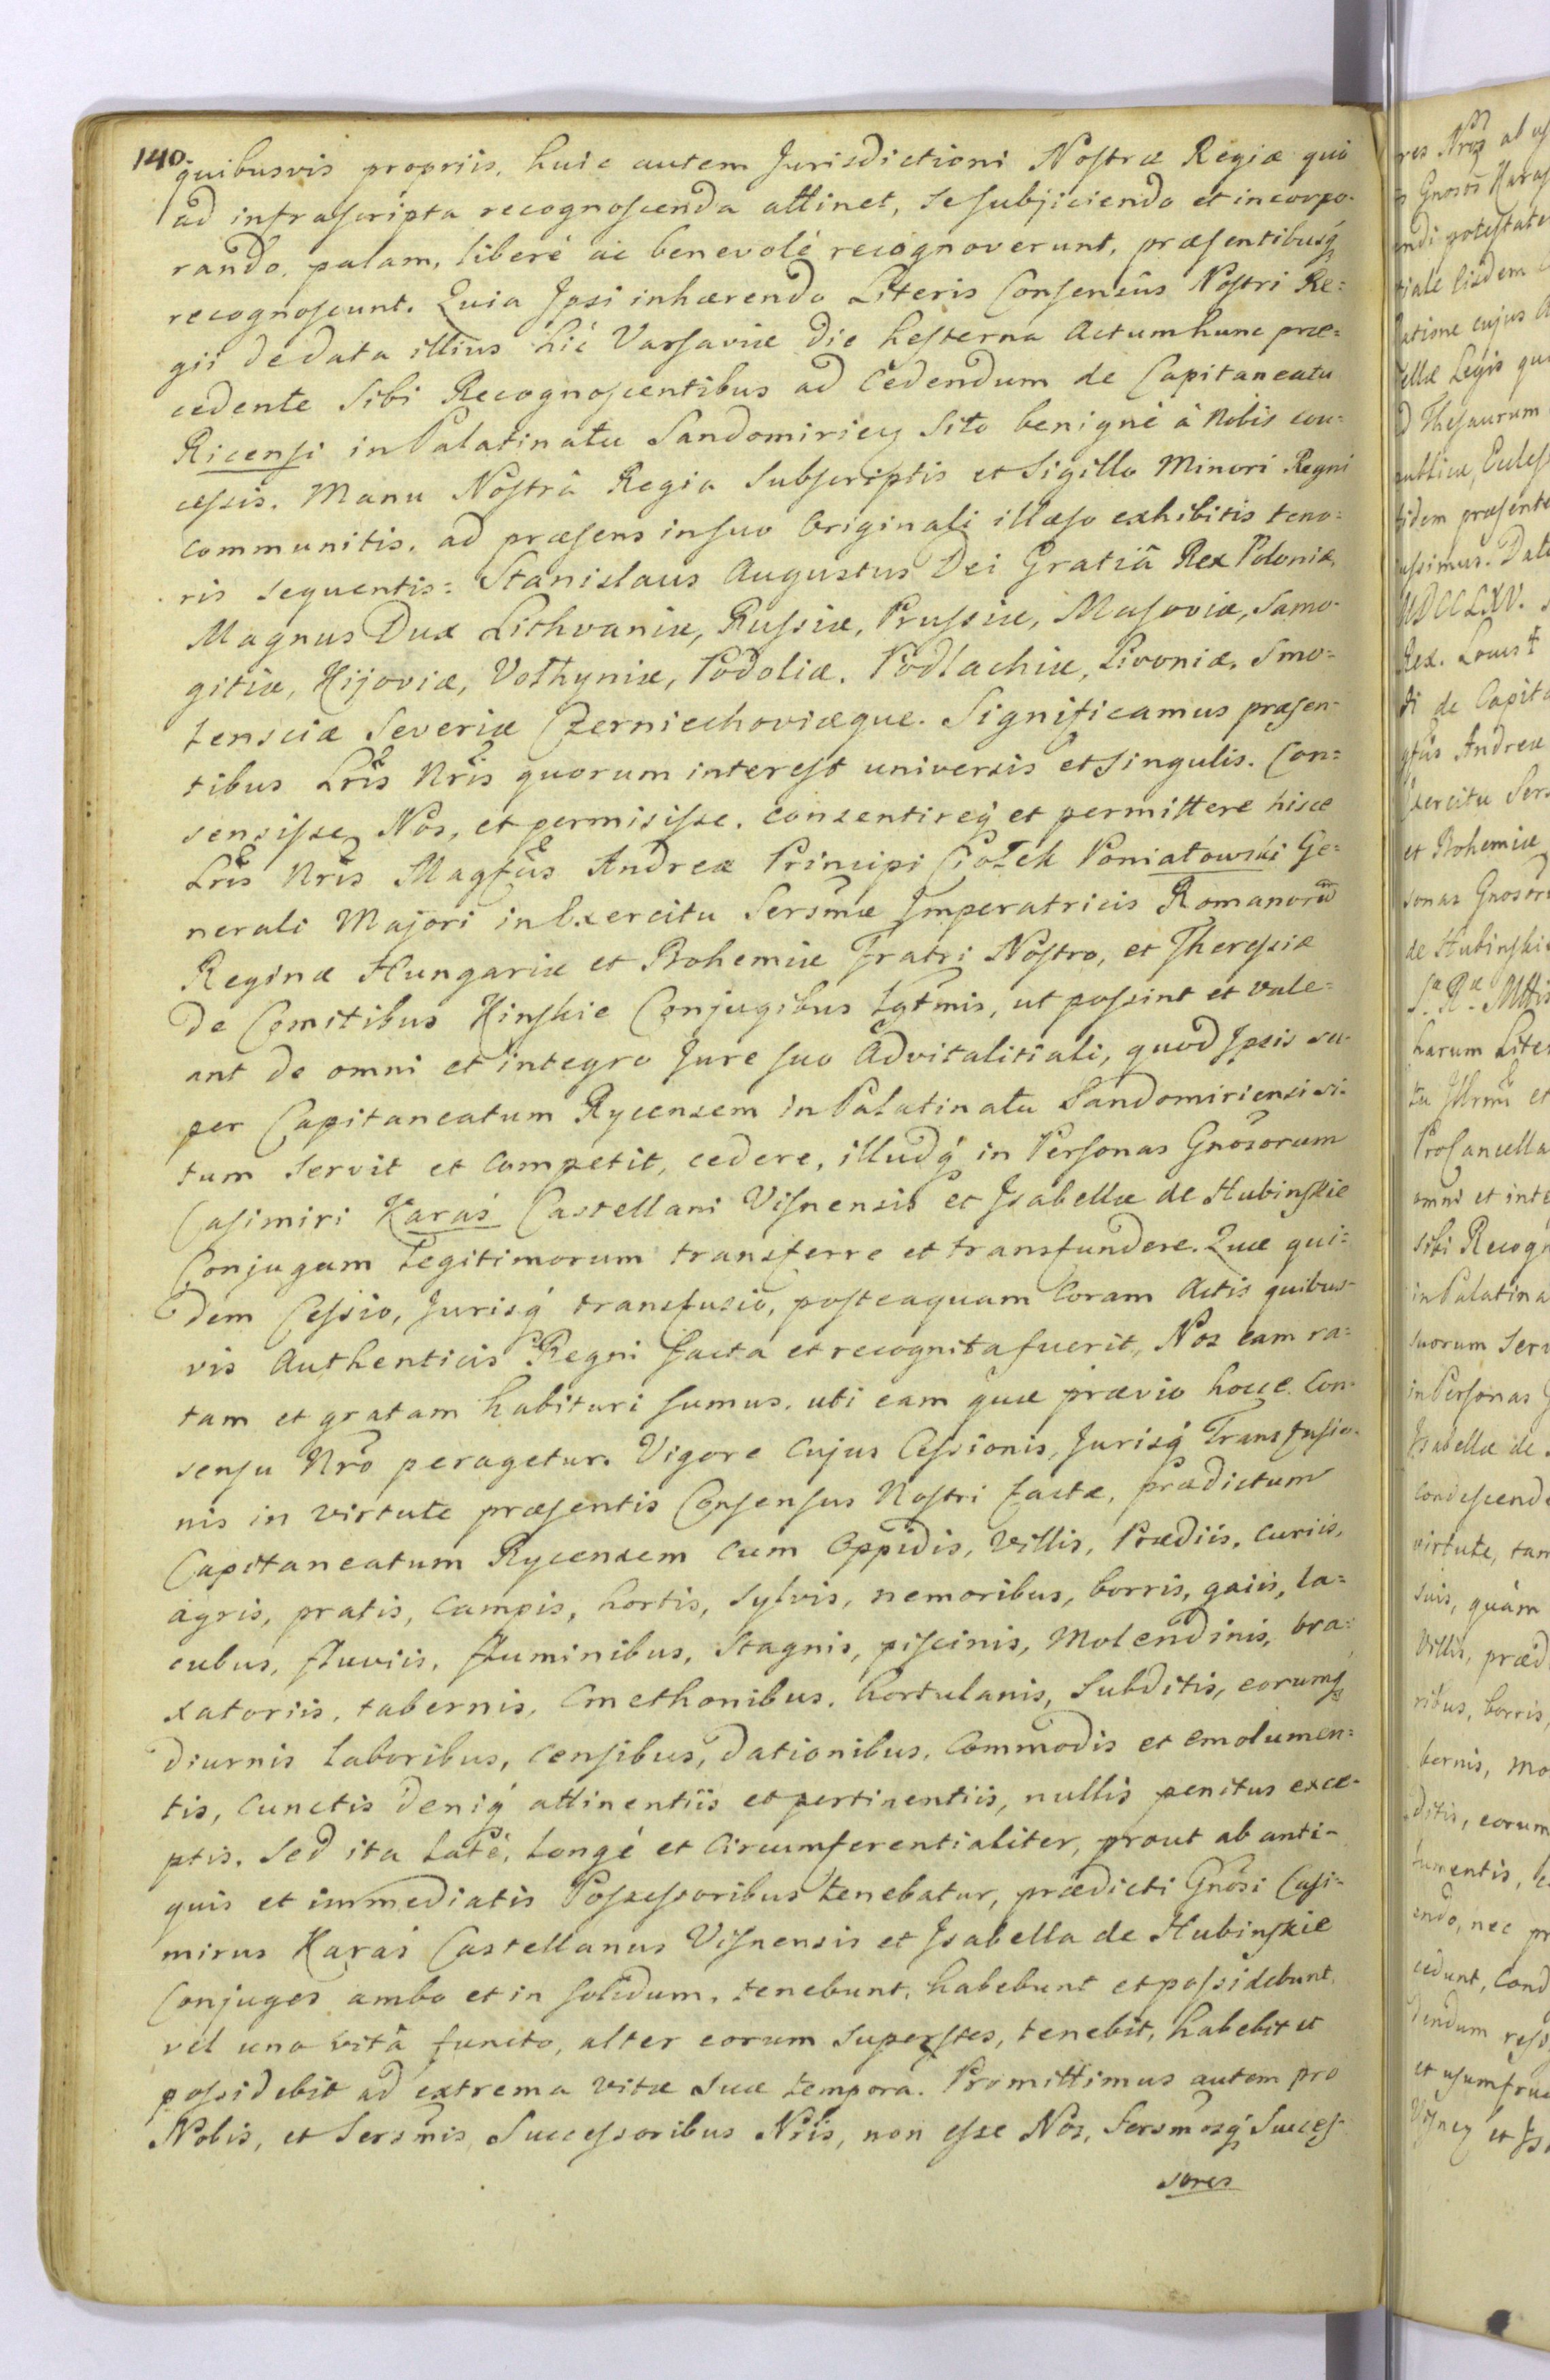 140.
quibusvis propriis, huic autem Jurisdictioni Nostræ Regiæ quò
ad infrascripta recognoscenda attinet, se subjiciendo et incorpo-
rando, palam, liberè ac benevolè recognoverunt, præsentibusq́
recognoscunt. Quia Ipsi inhærendo Literis Consensûs Nostri Re=
gii de data illius hic Varsaviæ die hesterna Actum hunc præ=
cedente Sibi Recognoscentibus ad Cedendum de Capitaneatu
Ricensi in Palatinatu Sandomirieɳ Sito benignè à Nobis con=
cessis. Manu Nostrâ Regia Subscriptis et Sigillo Minori Regni
communitis, ad præsens in suo Originali illæso exhibitis teno=
ris sequentis: Stanislaus Augustus Dei Gratiâ Rex Poloniæ,
Magnus Dux Lithvaniæ, Russiæ, Prussiæ, Masoviæ, Samo-
gitiæ, Kijoviæ, Volhyniæ, Podoliæ, Podlachiæ, Livoniæ, Smo-
lensciæ Severiæ Czerniechoviæque. Significamus præsen-
tibus Lris Nris quorum interest universis et singulis. Con=
sensisse Nos, et permisisse, consentireq́ et permittere hisce
Lris Nris Magfūs Andreæ Principi Ciołek Poniatowski Ge=
nerali Majori in Exercitu Sersmæ Imperatricis Romanorū
Reginæ Hungariæ et Bohemiæ Fratri Nostro, et Theresiæ
de Comitibus Kinskie Conjugibus Lgtmis, ut possint et vale=
ant de omni et integro Jure suo Advitalitiali, quod Ipsis su-
per Capitaneatum Rycensem in Palatinatu Sandomiriensi si-
tum servit et competit, cedere, illudq́ in Personas Gnosorum
Casimiri Karaś Castellani Visnensis et Isabellæ de Hubinskie
Conjugum Legitimorum transferre et transfundere. Quæ qui=
dem Cessio, Jurisq́ transfusio, posteaquam Coram Actis quibus-
vis Authenticis Regni facta et recognita fuerit, Nos eam ra=
tam et gratam habituri sumus, uti eam quæ prævio hocce Con-
sensu Nrō peragetur. Vigore Cujus Cessionis, Jurisq́ Transfusio-
nis in virtute præsentis Consensus Nostri factæ, prædictum
Capitaneatum Rycensem cum Oppidis, Villis, Prædiis, Curiis,
agris, pratis, campis, hortis, sylvis, nemoribus, borris, gaiis, la=
cubus, fluviis, fluminibus, Stagnis, piscinis, Molendinis, bra=
xatoriis, tabernis, Cmethonibus, hortulanis, Subditis, eorumq́
diurnis laboribus, censibus, dationibus, Commodis et emolumen=
tis, Cunctis deniq́ attinentiis et pertinentiis, nullis penitus exce-
ptis. Sed ita latè, longè et Circumferentialiter, prout ab anti-
quis et immediatis Possessoribus tenebatur, prædicti Gnōsi Casi-
mirus Karaś Castellanus Visnensis et Isabella de Hubinskie
Conjuges ambo et in solidum, tenebunt, habebunt et possidebunt,
vel uno vitâ functo, alter eorum Superstes, tenebit, habebit et
possidebit ad extrema vitæ suæ tempora. Promittimus autem pro
Nobis, et Sersmis Successoribus Nris, non esse Nos, Sersmosq́ Succes-
sores